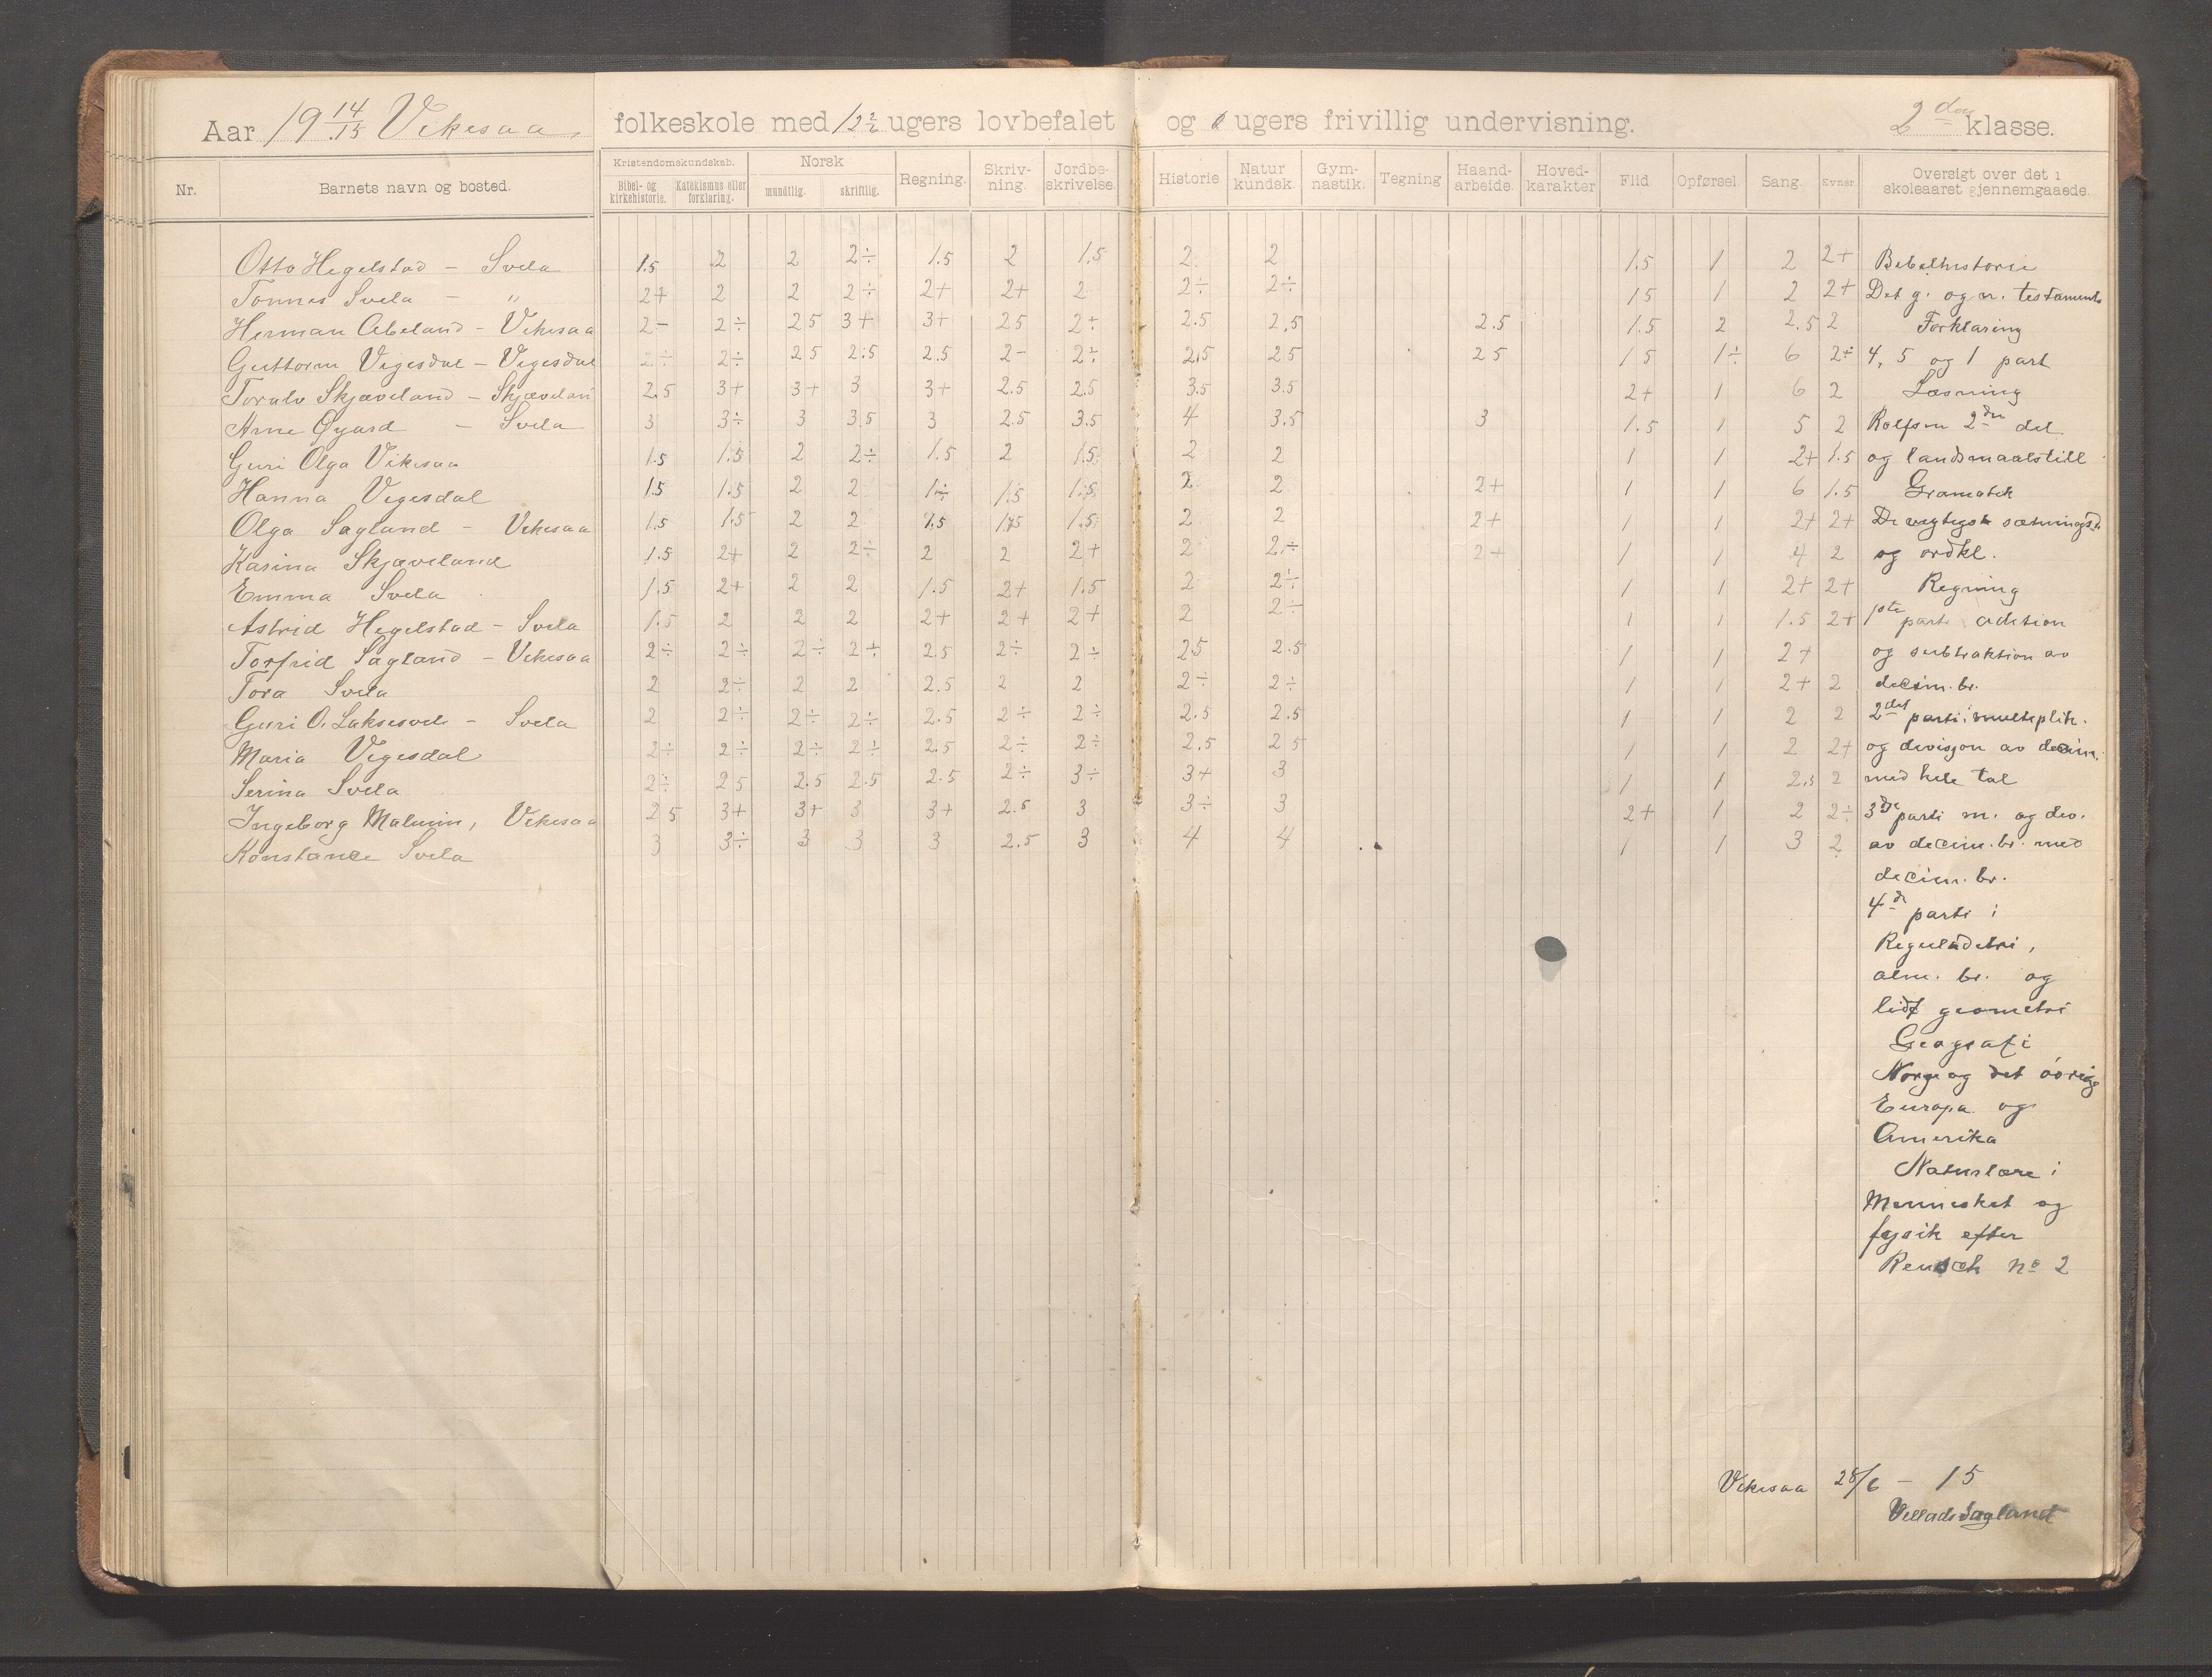 Aar 19 14/15 Vikesaa, folkeskole med 12 2/2 ugers lovbefalet og 0 ugers frivillig undervisning. 2den klasse.
Nr. Barnets navn og bosted. Kristendomskundskab. Bibel- og kirkehistorie. Katekismus eller forklaring. Norsk mundtlig. skriftlig. Regning. Skriv-ning. Jordbe-skrivelse. Historie Natur kundsk. Gym-nastik. Tegning Haand-arbeide. Hoved-karakter Flid Opførsel. Sang. Evner Oversigt over det i skoleaaret gjennemgaaede.
Otto Hegelstad - Svela 1.5 2 2 2÷ 1.5 2 1.5 2 2 1.5 1 2 2+ Bibelhistorie
Tønnes Svela - " 2+ 2 2 2÷ 2+ 2+ 2 2÷ 2÷ 15 1 2 2+ Det g. og n. testamente
Herman Abeland - Vikesaa 2- 2÷ 25 3+ 3+ 25 2÷ 2.5 2.5 2.5 1.5 2 2.5 2 Forklaring
Guttorm Vigesdal - Vigesdal 2÷ 2÷ 25 2.5 2.5 2- 2÷ 2.5 25 25 15 1÷ 6 2÷ 4, 5 og 1 part
Toralv Skjæveland - Skjæveland 2.5 3+ 3+ 3 3+ 2.5 2.5 3.5 3.5 2+ 1 6 2 Læsning
Arne Øgard - Svela 3 3÷ 3 3.5 3 2.5 3.5 4 3.5 3 1.5 1 5 2 Rolfsen 2den del
Guri Olga Vikesaa 1.5 1.5 2 2÷ 1.5 2 1.5 2 2 1 1 2+ 1.5 og landsmaalstill
Hanna Vigesdal 15 1.5 2 2 1÷ 1.5 1.5 2 2 2+ 1 1 6 1.5 Gramatik
Olga Sagland - Vikesaa 1.5 1.5 2 2 1.5 1.75 1.5 2 2 2+ 1 1 2+ 2+ De vigtigste sætningsd.
Kasina Skjæveland 1.5 2+ 2 2÷ 2 2 2+ 2 2÷ 2+ 1 1 4 2 og ordkl.
Emma Svela 1.5 2+ 2 2 1.5 2+ 1.5 2 2÷ 1 1 2+ 2+ Regning
Astrid Hegelstad - Svela 1.5 2 2 2 2+ 2+ 2+ 2 2÷ 1 1 1.5 2+ 1ste parti adition
Torfrid Sagland - Vikesaa 2÷ 2÷ 2÷ 2÷ 2.5 2÷ 2÷ 2.5 2.5 1 1 2+ og subtraktion av
Tora Svela 2 2÷ 2 2 2.5 2 2 2÷ 2÷ 1 1 2+ 2 decim. br.
Guri O. Laksesvel - Svela 2 2÷ 2÷ 2÷ 2.5 2÷ 2÷ 2.5 2.5 1 1 2 2 2det parti: multeplik.
Maria Vigesdal 2÷ 2÷ 2÷ 2÷ 2.5 2÷ 2÷ 2.5 25 1 1 2 2+ og divisjon av decim.
Serina Svela 2÷ 25 2.5 2.5 2.5 2÷ 3÷ 3+ 3 1 1 2.5 2 med hele tal
Ingeborg Malmin, Vikesaa 25 3+ 3+ 3 3+ 2.5 3 3÷ 3 2+ 1 2 2÷ 3dje parti m. og div.
Konstance Svela 3 3÷ 3 3 3 2.5 3 4 4 1 1 3 2 av decim. br. med
decim. br.
4de parti i
Reguladetri,
alm. br. og
lidt geometri
Geografi
Norge og det øvrige
Europa og
Amerika
Naturlære i
Mennesket og
fysik efter
No 2
Vikesaa 28/6 - 15
Sagland